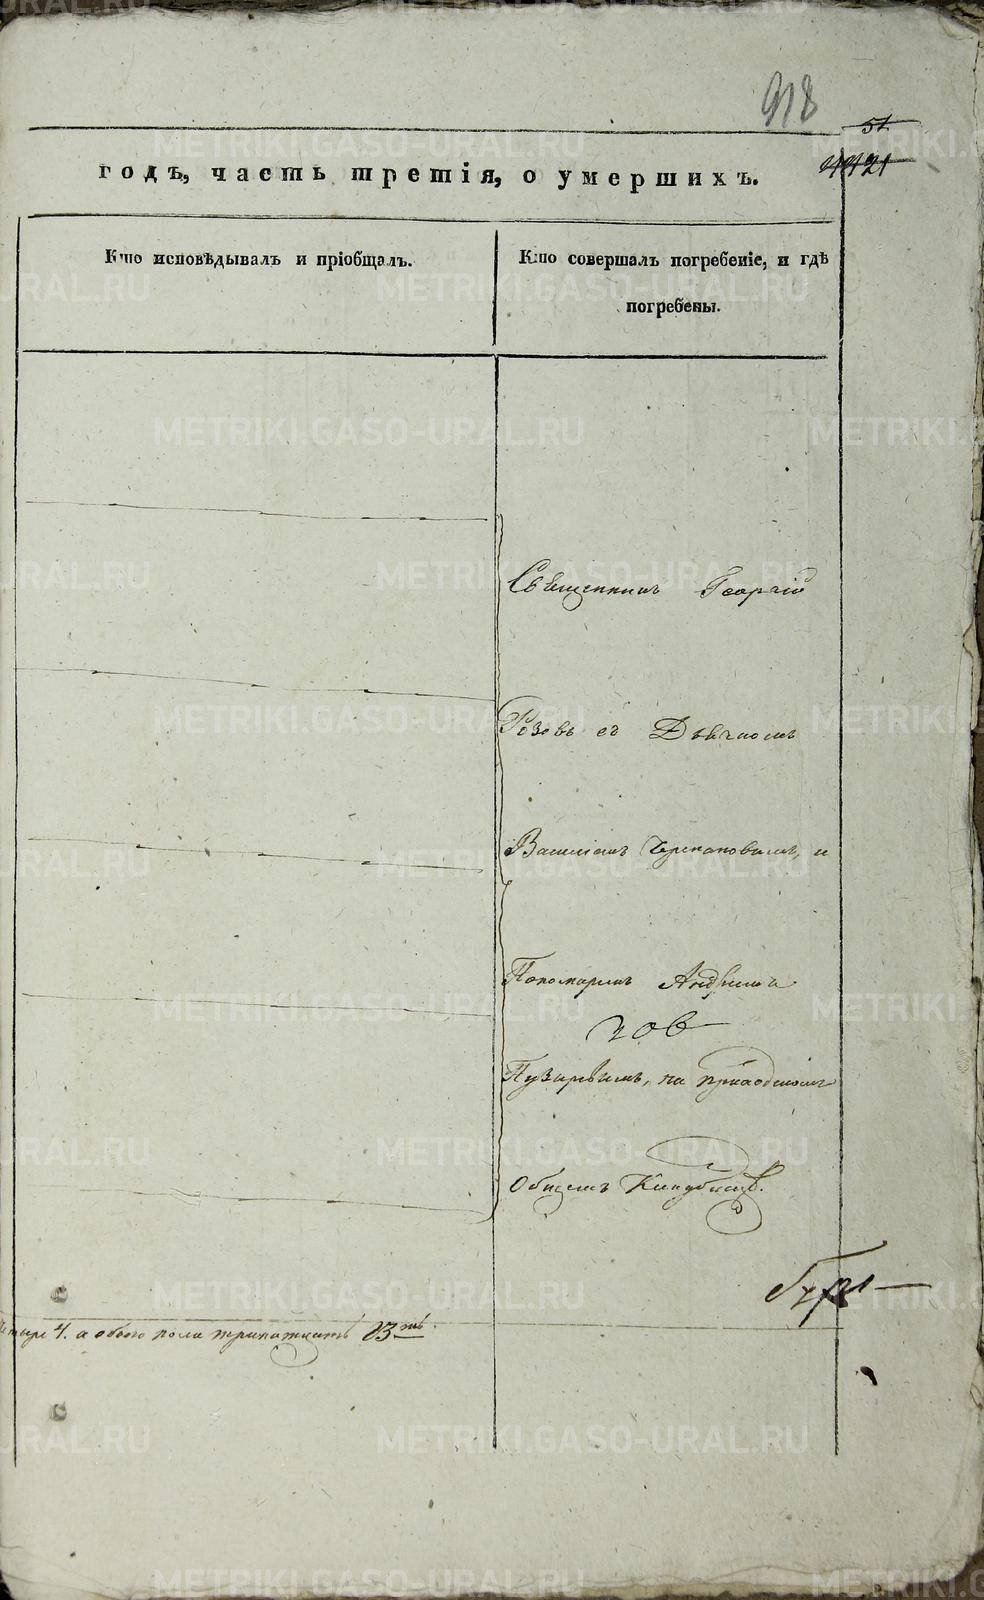 918
51
421
годъ, часть третія, о умершихъ.
Кто исповѣдывалъ и пріобщалъ.
Кто совершалъ погребеніе, и гдѣ
погребены.
Священникъ Георгій
Розовъ съ Дьячкомъ
Василіемъ Черкановымъ, и
Пономаремъ
ков
Пузаревымъ, на приходскомъ
Общемъ Кладбищѣ.
четыре 4. а обоего пола тринатцать 13ть.
METRIKI.GASO-URAL.RU